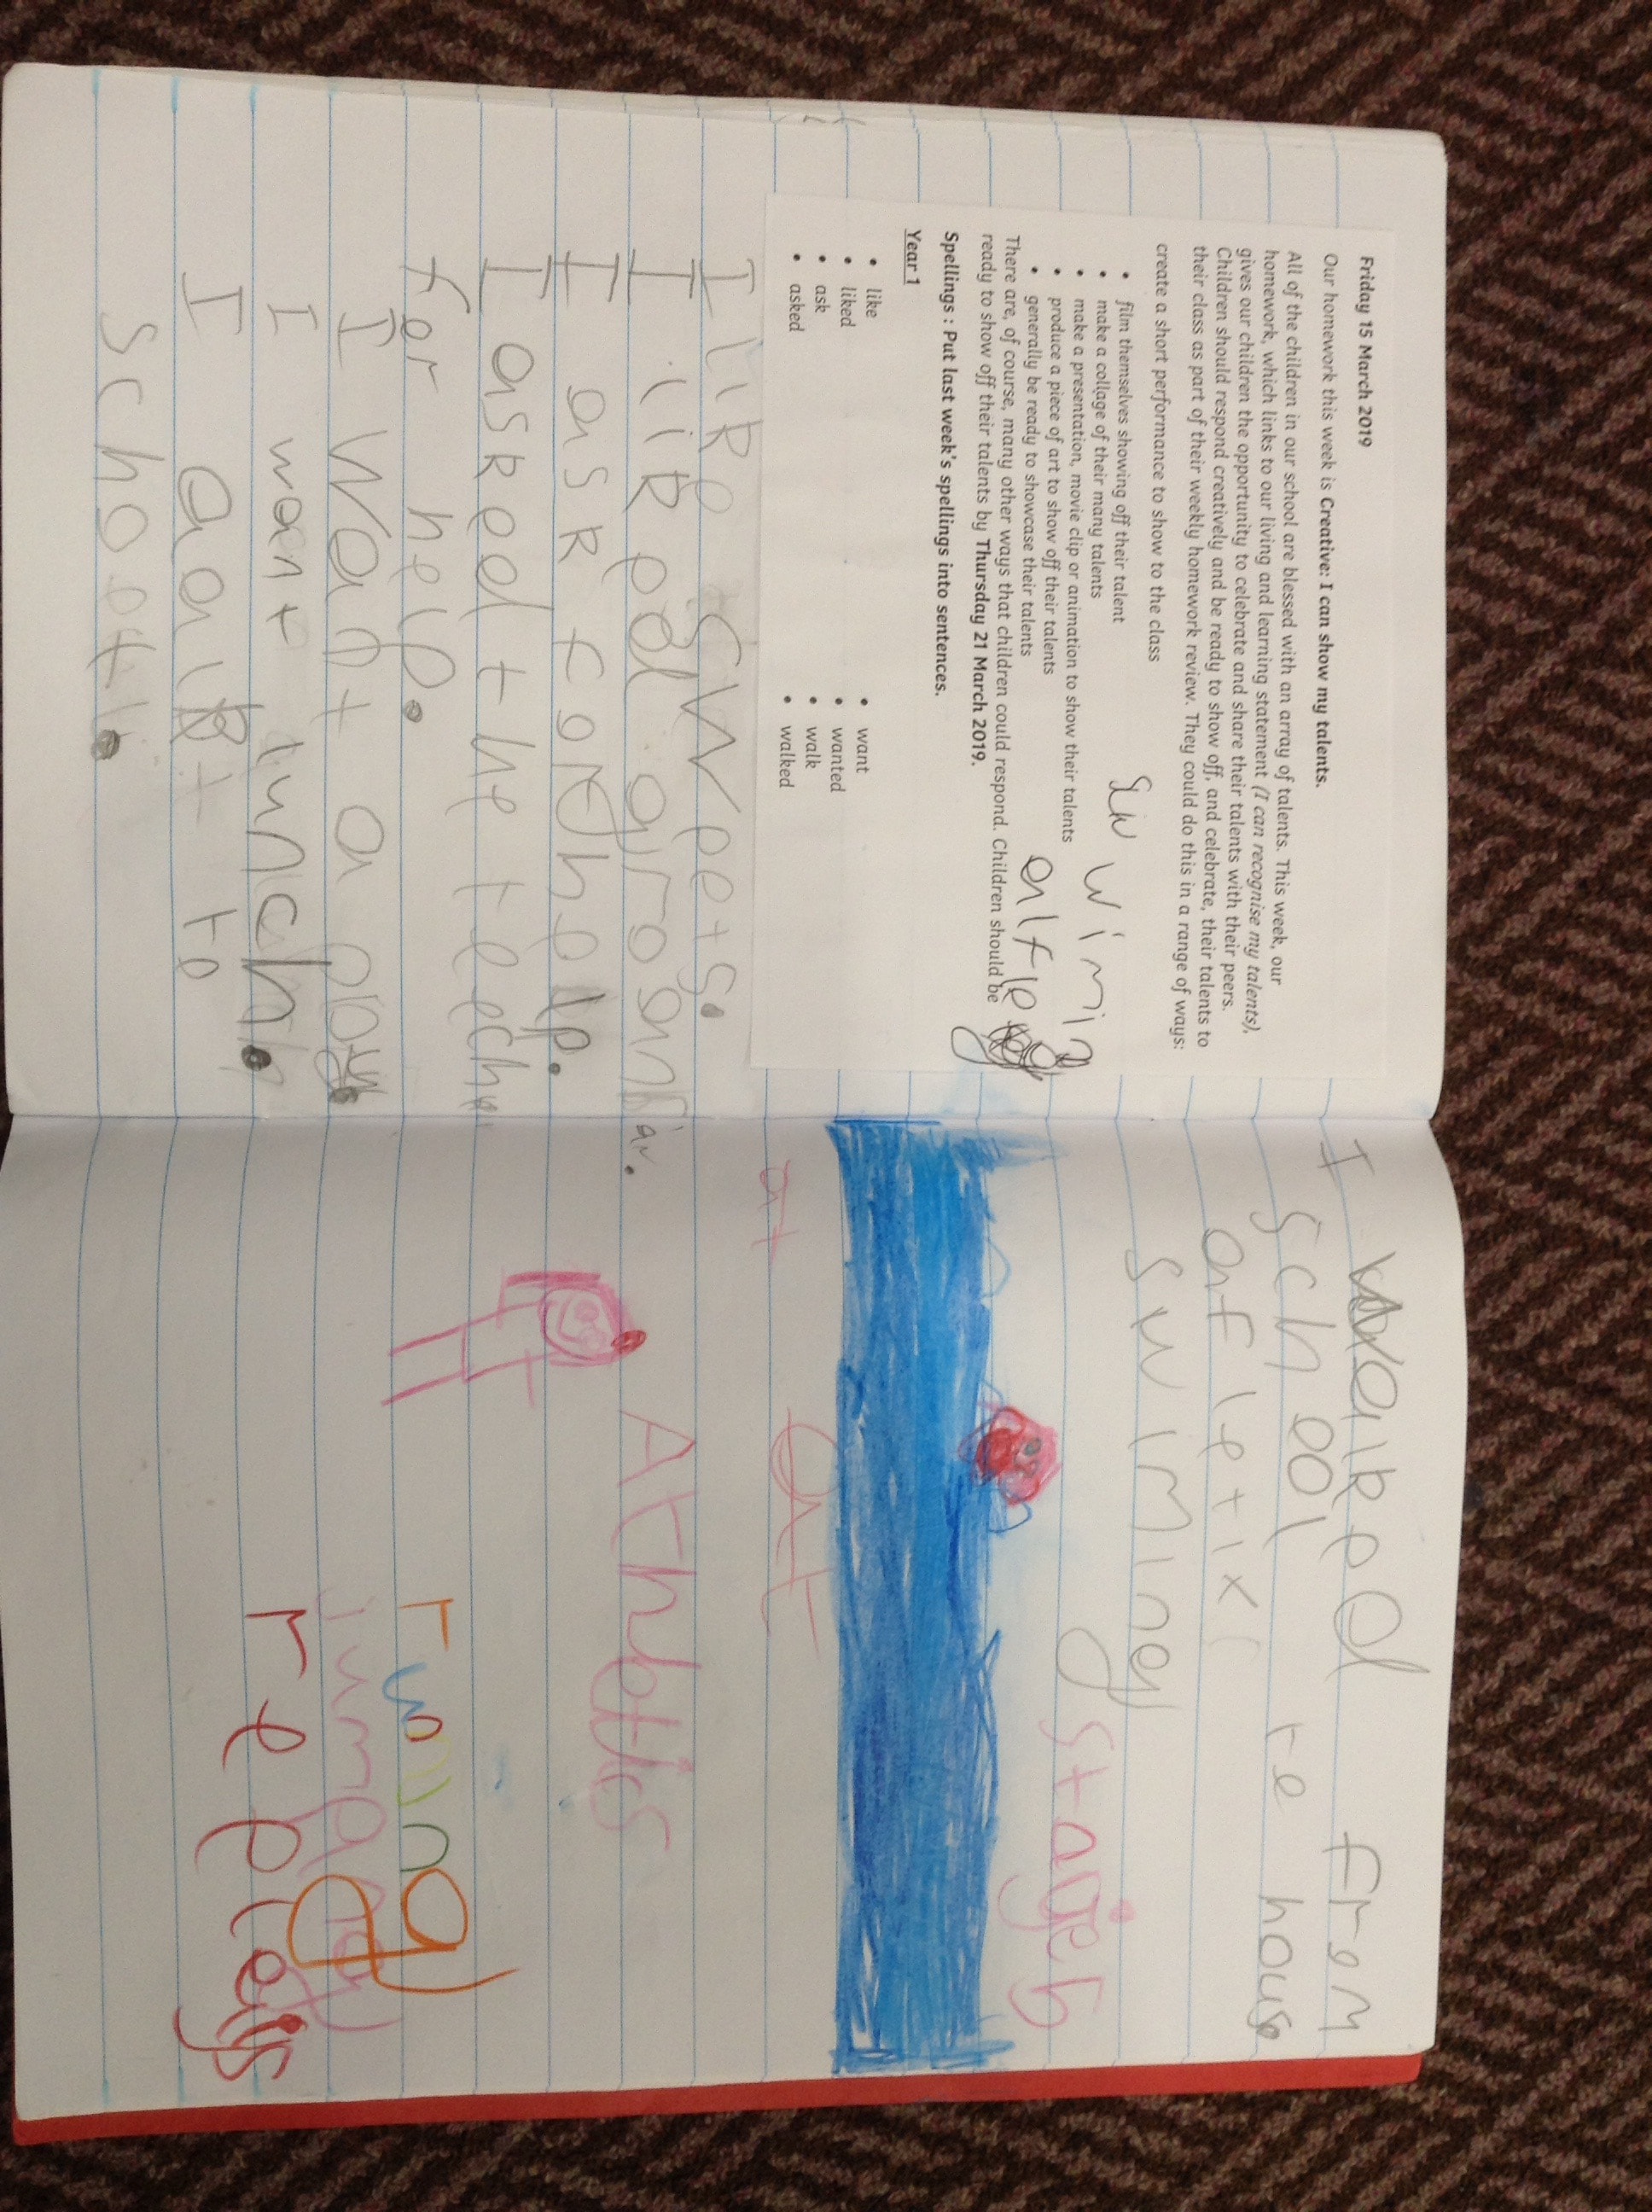 Friday 15 March 2019
Our homework this week is Creative: I can show my talents.
All of the children in our school are blessed with an array of talents. This week, our
homework, which links to our living and learning statement (I can recognise my talents),
gives our children the opportunity to celebrate and share their talents with their peers.
Children should respond creatively and be ready to show off, and celebrate, their talents to
their class as part of their weekly homework review. They could do this in a range of ways:
create a short performance to show to the class
• film themselves showing off their talent
• make a collage of their many talents
• make a presentation, movie clip or animation to show their talents
• produce a piece of art to show off their talents
• generally be ready to showcase their talents
There are, of course, many other ways that children could respond. Children should be
ready to show off their talents by Thursday 21 March 2019.
Spellings : Put last week's spellings into sentences.
Year 1
• like
• liked
• ask
• asked
• want
• wanted
• walk
• walked
wimig
alfle
I like Sweets.
I liked
I ask for help.
I asked the
for help.
I Want a play.
I want lunch.
I to
I walked from
school te house
arfletix
swiming
stage 5
at
at
Athletics
running
jumping